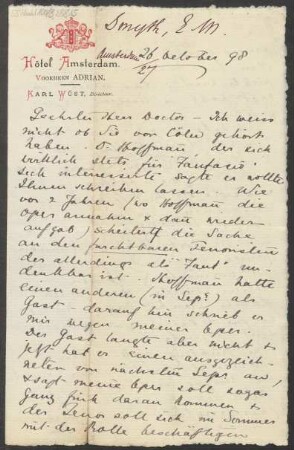 Smyth, E. M.
Hôtel Amsterdam.
VOORHEEN ADRIAN.
KARL WÜST, Directeur.
Amsterdam 26 October 98
27
Geehrter Herr Doctor – Ich weiss
nicht ob Sie von Cöln gehört
haben. Hoffman der sich
wirklich stets für "Fantasio"
sich interessirte sagte er wollte
Ihnen schreiben lassen. Wie
vor 2 Jahren (wo Hoffman die
Oper annahm & dann wieder
aufgab) scheiterte die Sache
an den furchtbaren Tenoristen
der allerdings als "Fant" un-
denkbar ist. Hoffman hatte
einen anderen (in Sept) als
Gast – darauf hin schrieb er
mir wegen meiner Oper.
Der Gast langte aber nicht &
jetzt hat er einen ausgezeich-
neten vom nächsten Sept an,
& sagt meine Oper soll sogar
ganz früh daran kommen &
der Tenor soll sich im Sommer
mit der Rolle beschäftigen